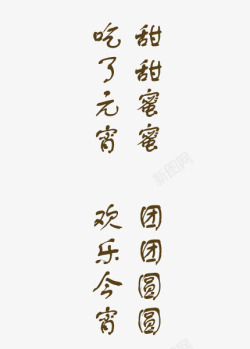 甜甜蜜蜜
吃了元宵
团团圆圆
欢乐今宵
新图网